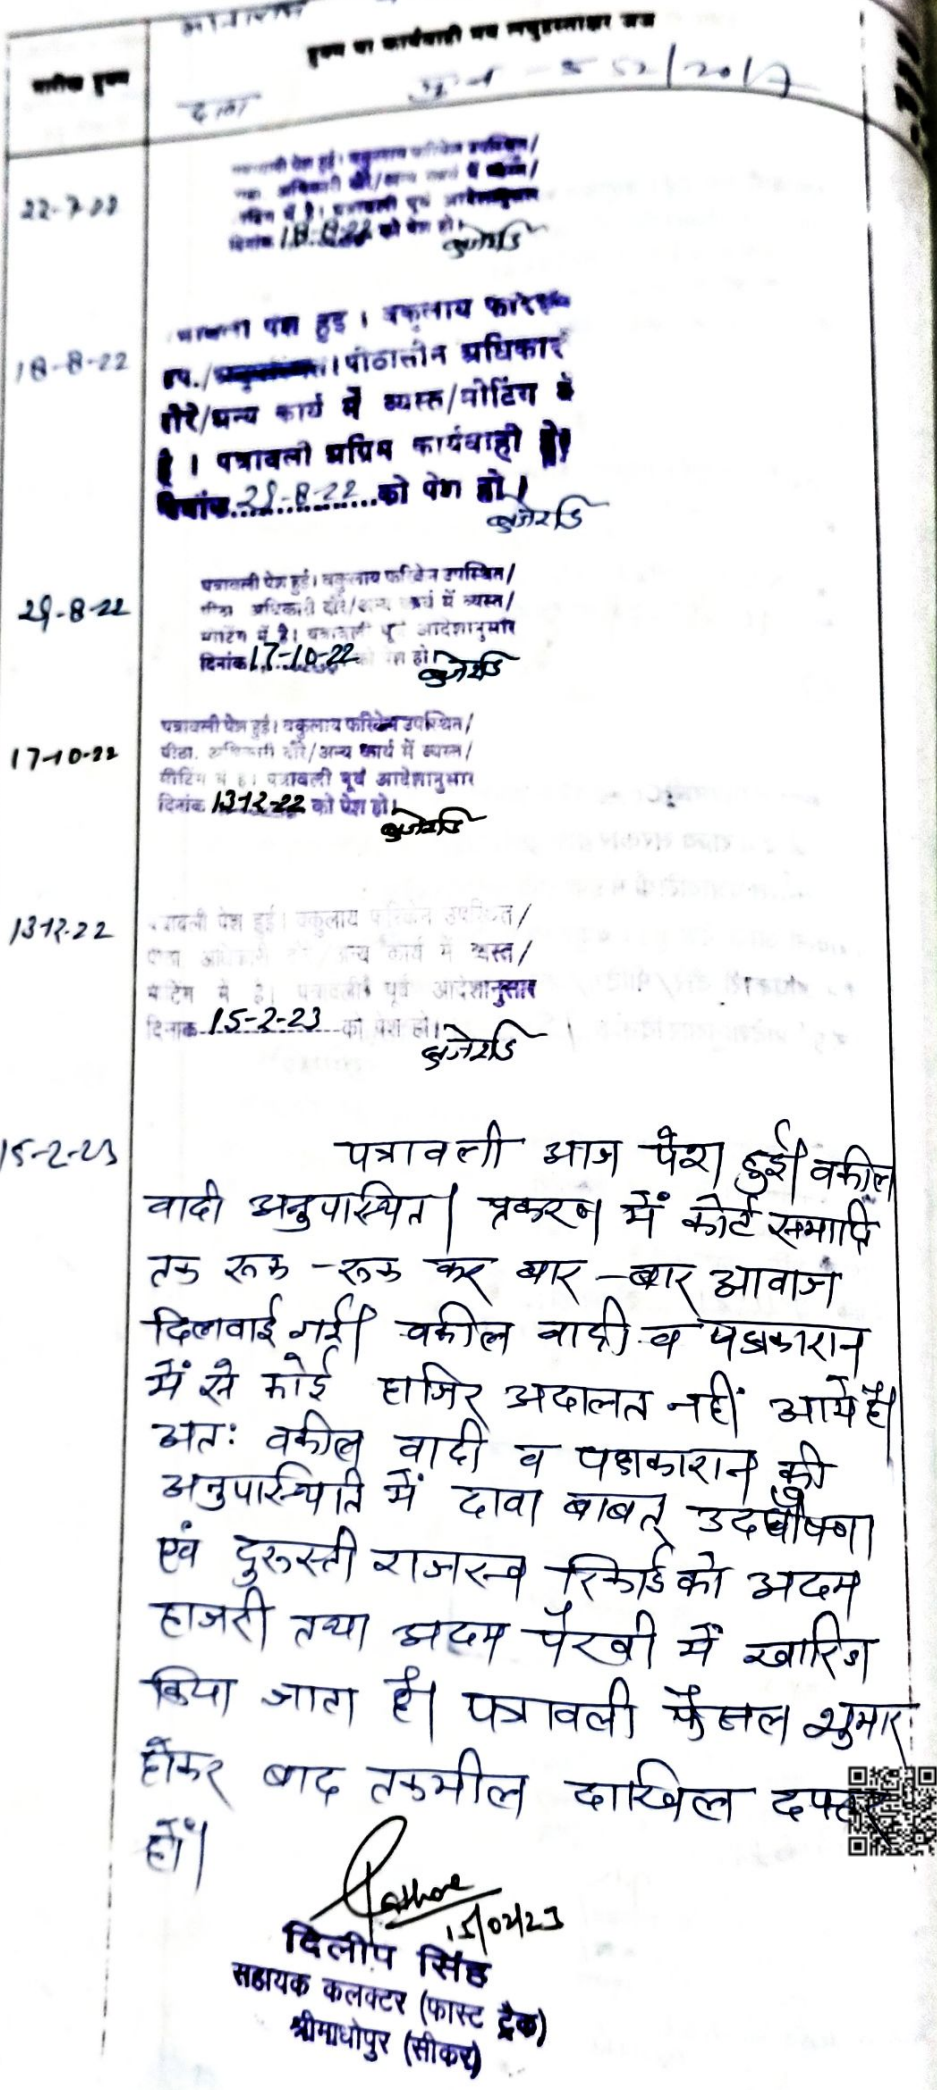 हुक्म या कार्यवाही मय लघुहस्ताक्षर जज
तारीख हुक्म
552/2017
दावा
22-7-22
पेश हुई। वकुलाय फरिकेन उपस्थित/
अधिकारी दौरे/अन्य कार्य में व्यस्त/
मीटिंग में है। पत्रावली पूर्व आदेशानुसार
दिनांक 18-8-22 को पेश हो।
18-8-22
पत्रावली पेश हुई । वकुलाय फरिकेन
उप./ । पीठासीन अधिकारी
दौरे/अन्य कार्य में व्यस्त/मीटिंग में
है । पत्रावली अग्रिम कार्यवाही हेतु
दिनांक..29-8-22....को पेश हो ।
29-8-22
पत्रावली पेश हुई। वकुलाय फरिकेन उपस्थित/
पीठा. अधिकारी दौरे/अन्य कार्य में व्यस्त/
मीटिंग में है। पत्रावली पूर्व आदेशानुसार
दिनांक 17-10-22 को पेश हो।
17-10-22
पत्रावली पेश हुई। वकुलाय फरिकेन उपस्थित/
पीठा. अधिकारी दौरे/अन्य कार्य में व्यस्त/
मीटिंग में है। पत्रावली पूर्व आदेशानुसार
दिनांक 13-12-22 को पेश हो।
13-12-22
पत्रावली पेश हुई। वकुलाय फरिकेन उपस्थित/
पीठा अधिकारी दौरे/अन्य कार्य में व्यस्त/
मीटिंग में है। पत्रावली पूर्व आदेशानुसार
दिनांक 15-2-23 को पेश हो।
15-2-23
पत्रावली आज पेश हुई। वकील
वादी अनुपास्थित। प्रकरण में कोर्ट समाप्ति
तक रूक -रूक कर बार -बार आवाज
दिलवाई गई। वकील वादी व पक्षकारान
में से कोई हाजिर अदालत नहीं आये है।
अतः वकील वादी व पक्षकारान की
अनुपास्थिति में दावा बाबत् उदघोषणा
एवं दुरूस्ती राजस्व रिकार्ड को अदम
हाजरी तथा अदम पैरवी में खारिज
किया जाता है। पत्रावली फैसल शुमार
होकर बाद तकमील दाखिल दफ्तर
हों।
15/02/23
दिलीप सिंह
सहायक कलक्टर (फास्ट ट्रैक)
श्रीमाधोपुर (सीकर)